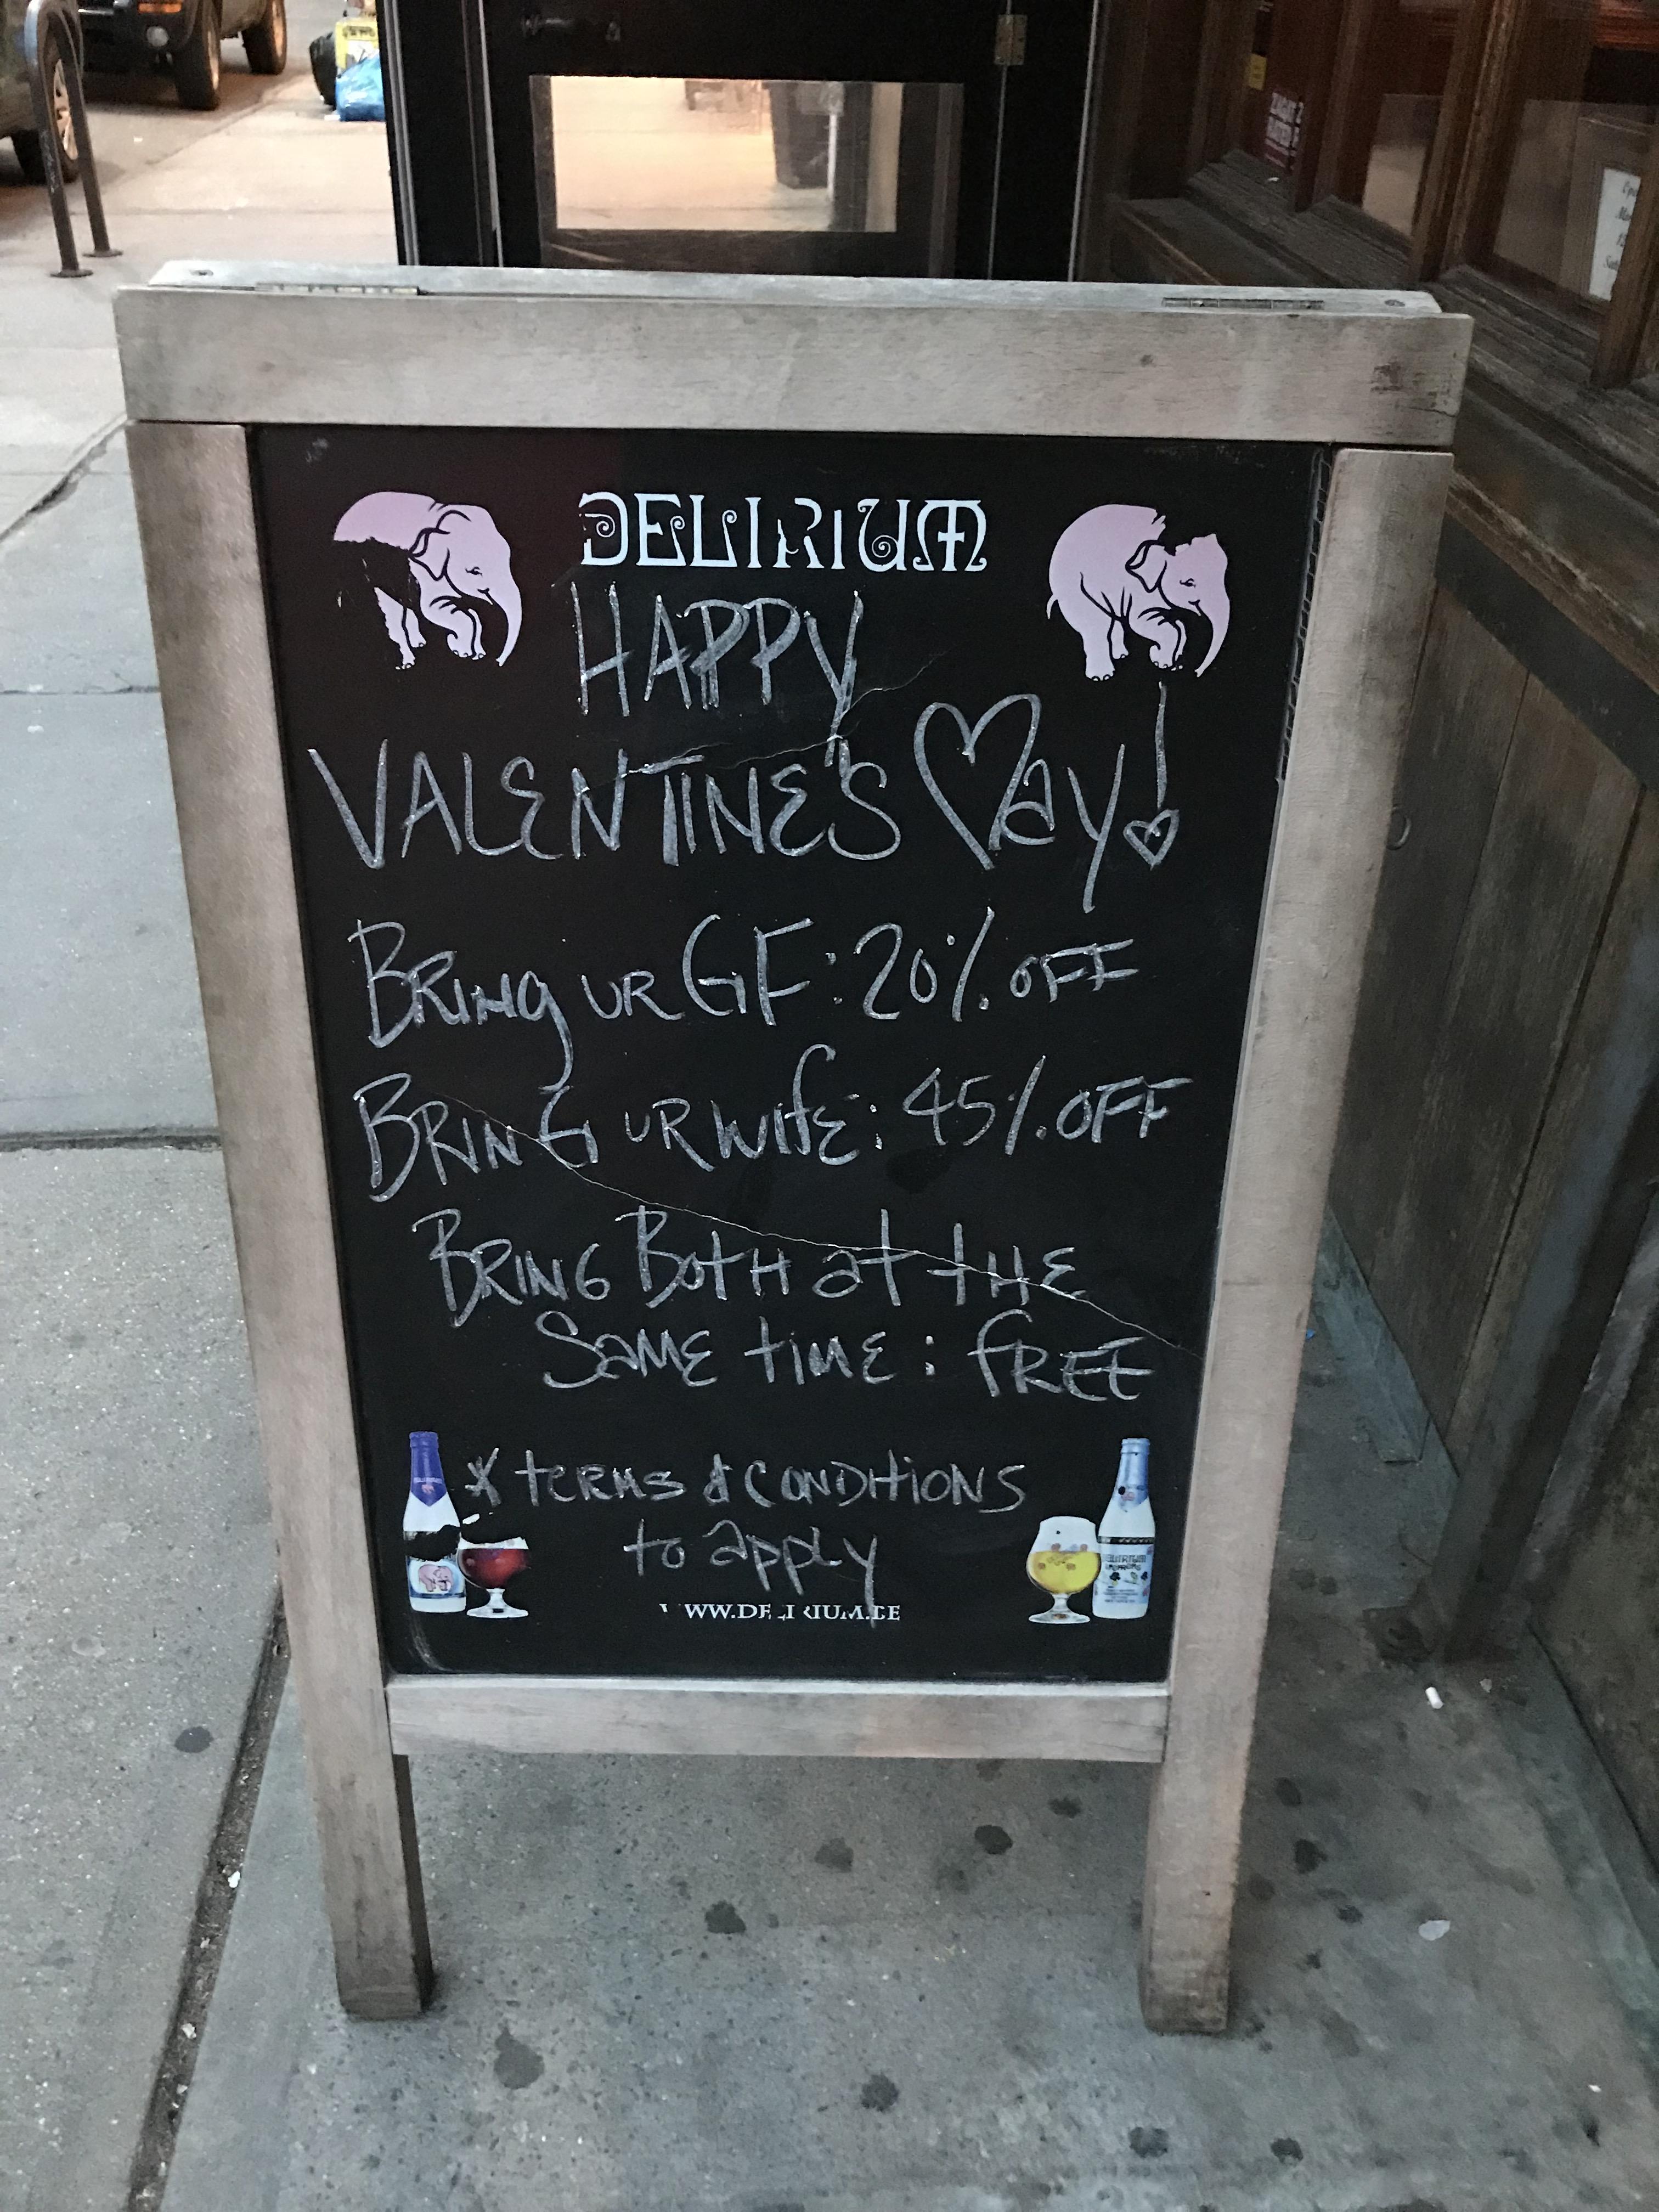 DELIRIUM
HAPPY
VALENTINE'S Day!
BRING UR GF: 20% OFF
BRING UR WIFE: 45% OFF
BRING BOTH at tHE
SAME tIME: FREE
* tERMS & CONDITIONS
to apply
WWW.DELIRIUM.BE
DELIRIUM